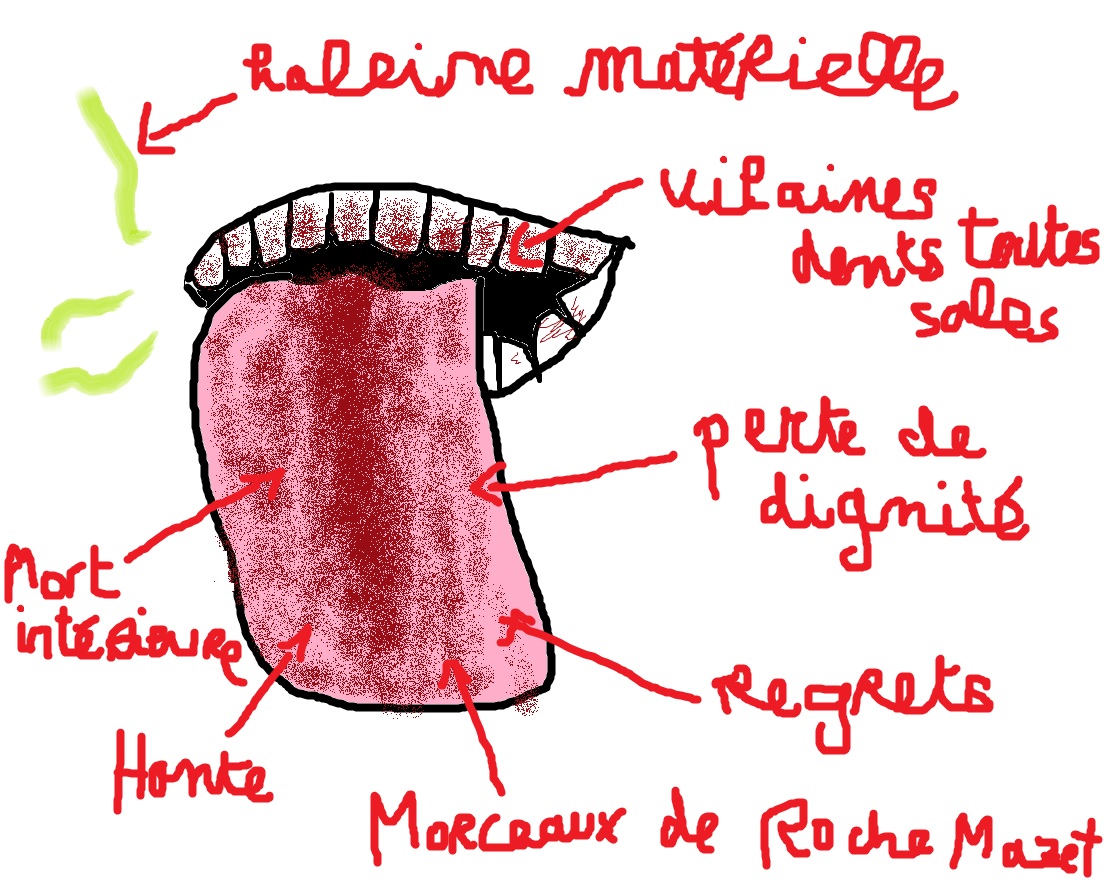 haleine matérielle
vilaines
dents toutes
sales
perte de
dignité
Mort
intérieure
regrets
Honte
Morceaux de Roche Mazet